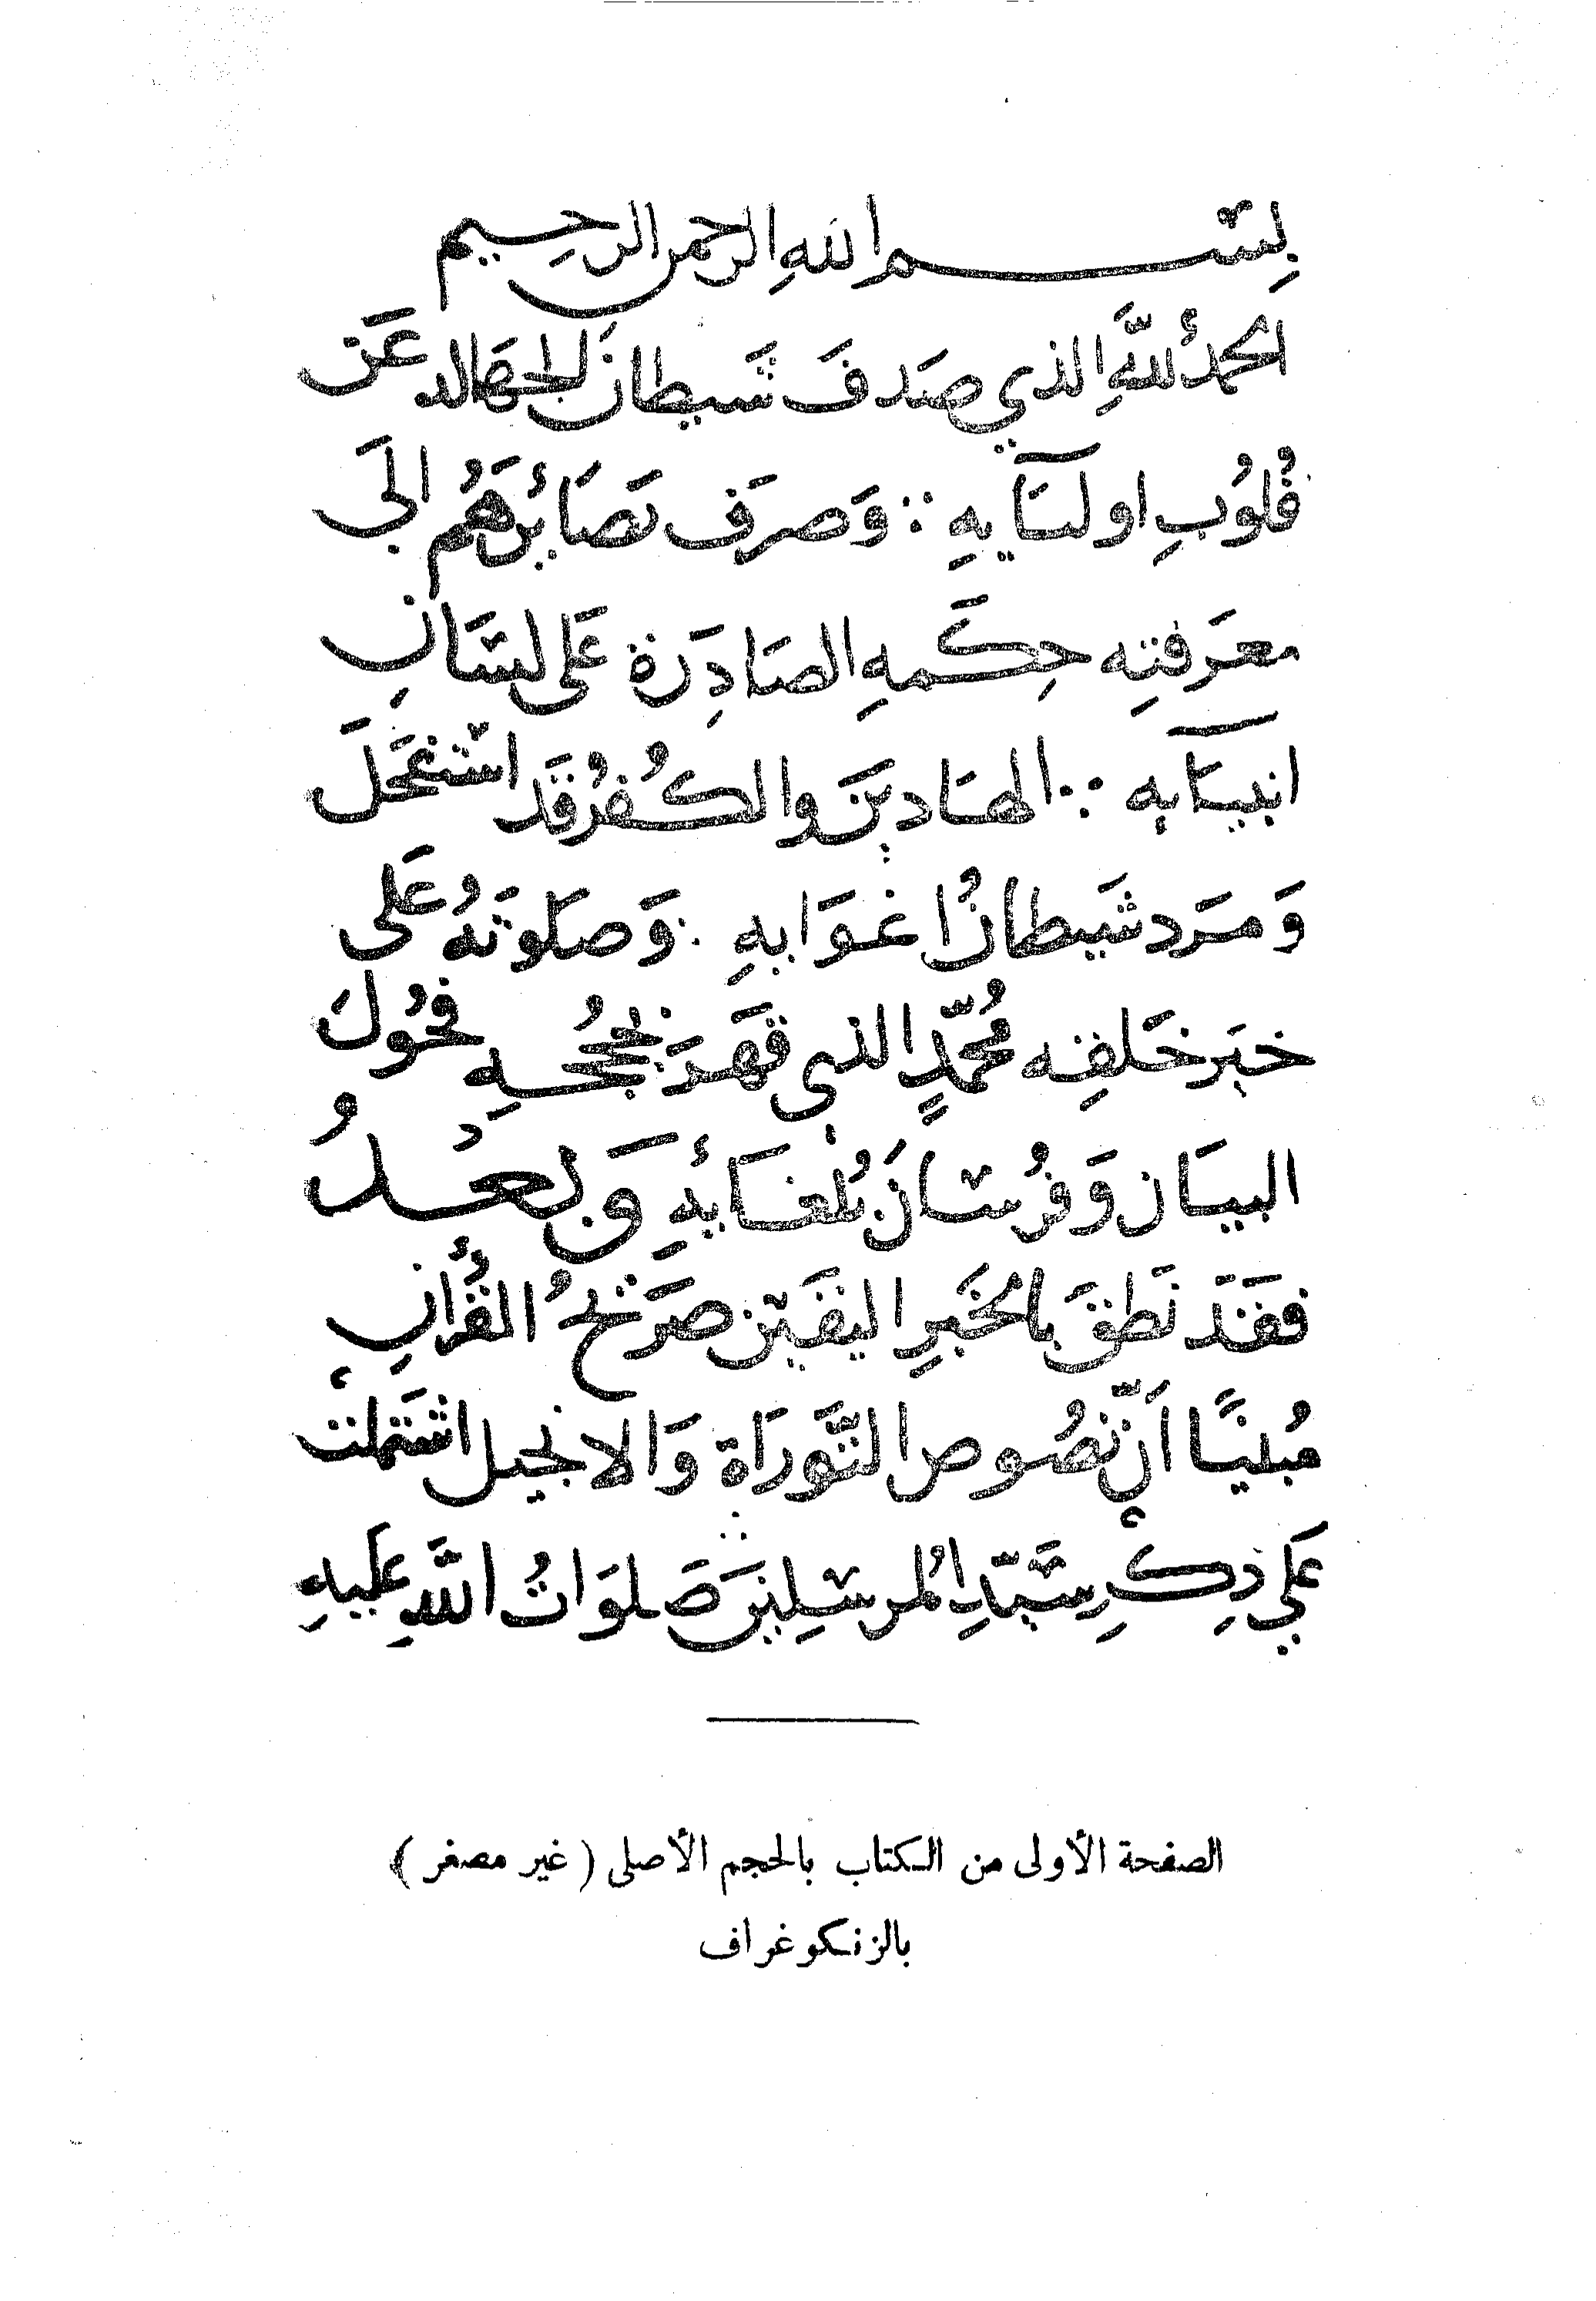 بِسْم اللهِ الرحمن الرحِيم
الحمدُ للَّهِ الذي صَدفَ شَيطانَ الجهَاله عَن
قُلوُبِ اوليَآيهِ ∴ وَصرَف بَصَائِرَهُم الَى
معرَفتِه حِكَمهِ الصَادِرَة عَلى لسَانِ
انبيَآيه ∴ الهَادينَ والكُفرُ قَد استفحَلَ
وَمرَد شَيطانُ اغوَايهِ ∴ وَصَلوتهُ عَلى
خيَر خَلقِه مُحمّدٍ الذي قهَرَ بحُججِهِ فحُولَ
البيَان وَفُرسَانَ بُلغَائهِ وَبَعْدُ
فقَد نَطقَ بالخَبَرِ اليَقين صَريحُ القُرآنِ
مُبيّنًا أَنّ نصُوص التَّورَاة وَالانجيل اشتَملتْ
عَلي ذِكرِ سَيّدِ المُرسَلينَ صَلوَاتُ اللَّهِ عَليهِ
الصفحة الأولى من الكتاب بالحجم الأصلى ( غير مصغر )
بالزنكوغراف